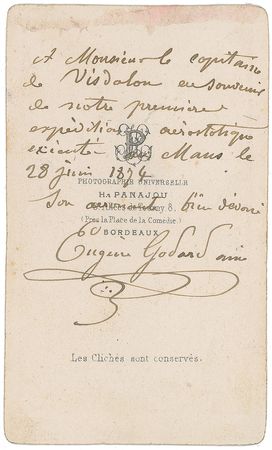 A Monsieur le capitaine
de Visdalon en souvenir
de notre première
expédition aérostatique
exécutée au Mans le
28 juin 1874
PHOTOGRAPHIE UNIVERSELLE
Hri PANAJOU
8, Allées de Tourny 8.
Son bien dévoué
(Près la Place de la Comédie)
BORDEAUX
Eugène Godard ainé
Les Clichés sont conservés.